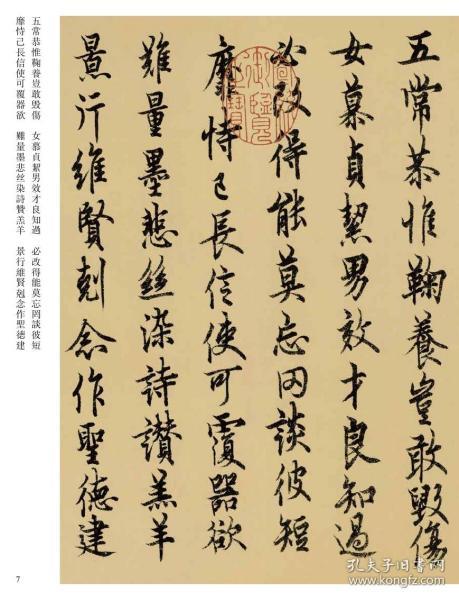 五常恭惟鞠養豈敢毀傷
女慕貞絜男效才良知過
必改得能莫忘罔談彼短
靡恃己長信使可覆器欲
難量墨悲絲染詩讚羔羊
景行維賢剋念作聖德建
五常恭惟鞠養豈敢毀傷 女慕貞絜男效才良知過 必改得能莫忘罔談彼短
靡恃己長信使可覆器欲 難量墨悲丝染詩贊羔羊 景行維賢剋念作聖德建
7
孔夫子旧书网
www.kongfz.com